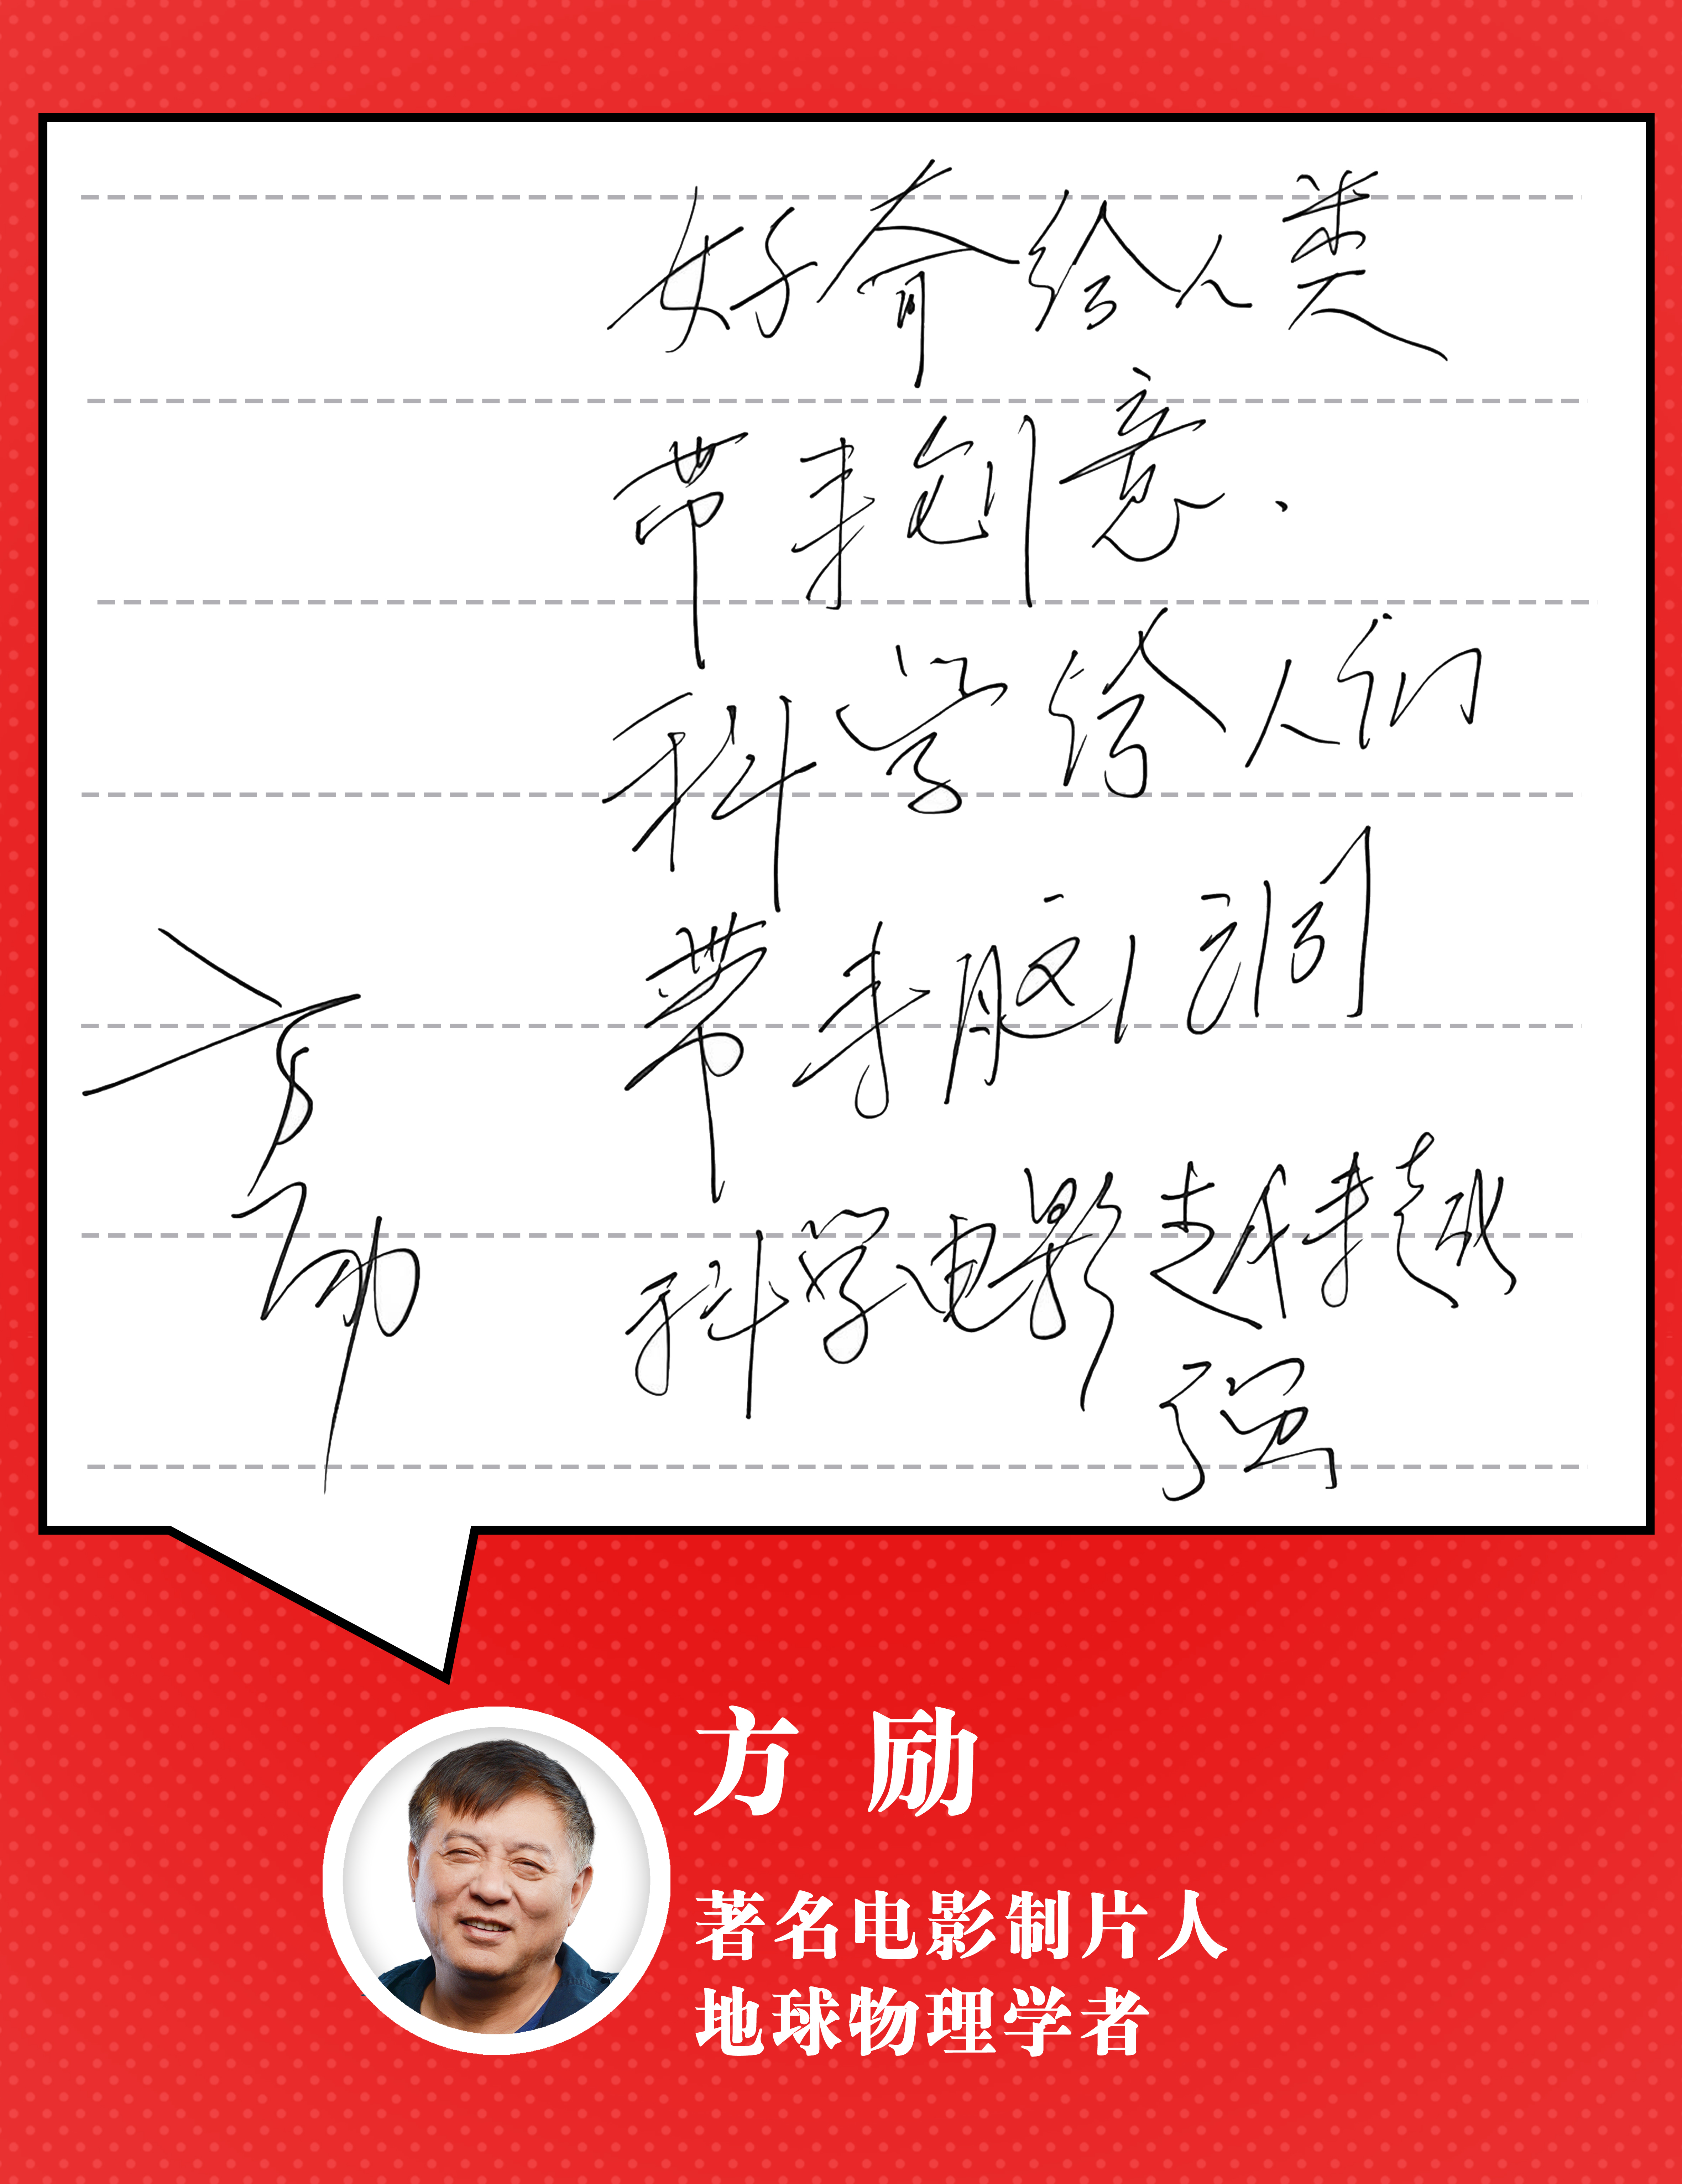 好奇给人类
带来创意.
科学给人们
带来脑洞
科学电影越来越
强
方励
方 励
著名电影制片人
地球物理学者